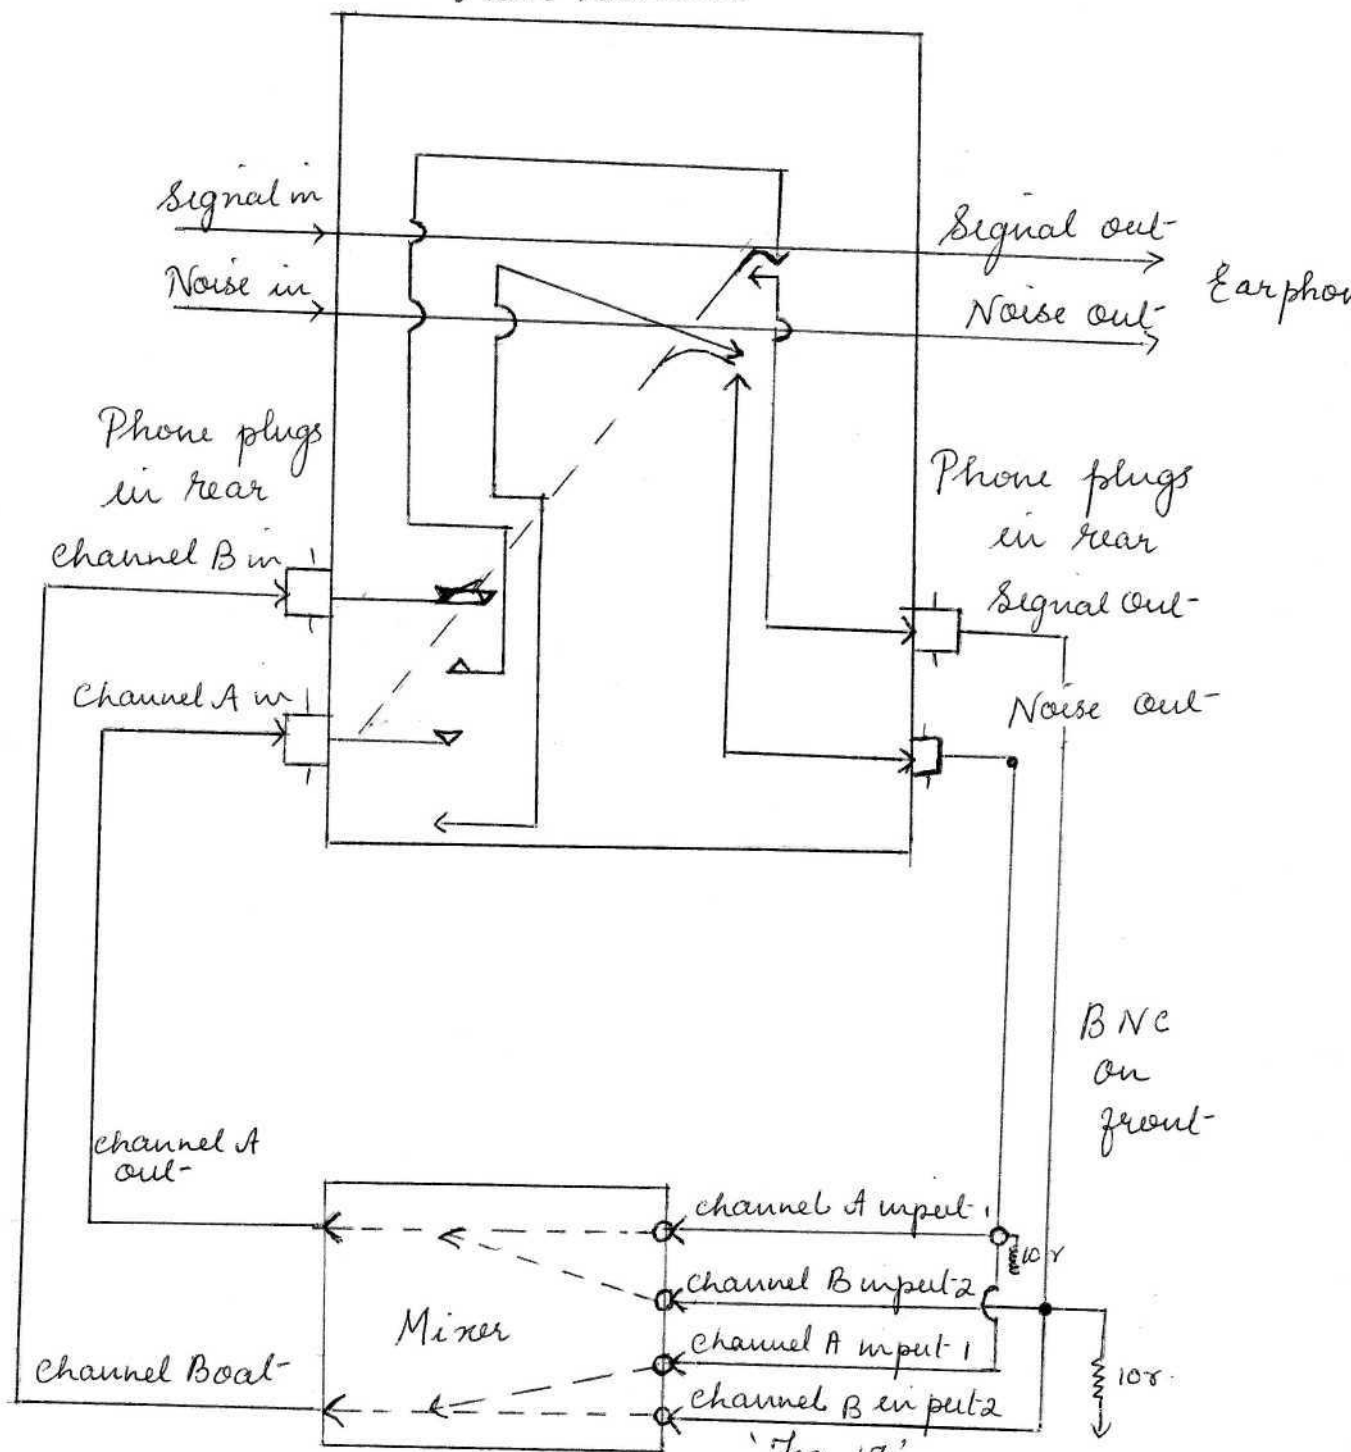 Signal in
Noise in
Signal out
Noise out
Phone plugs
in rear
Channel B in
Channel A in
Phone plugs
in rear
Signal Out
Noise out
BNC
on
front
channel A
out
channel A input 1
10r
channel B input 2
Mixer
channel A input 1
channel Boat
channel B input 2
10r.